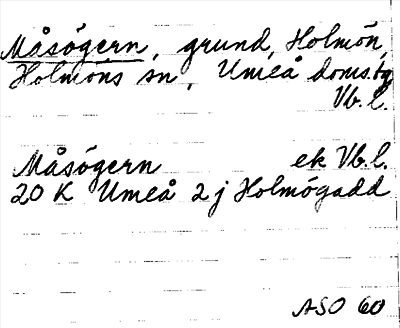 Måsögern, grund, Holmön,
Holmöns sn, Umeå doms.tg
Vb.l.
Måsögern ek Vb.l.
20 K Umeå 2 j Holmögadd
ASO 60